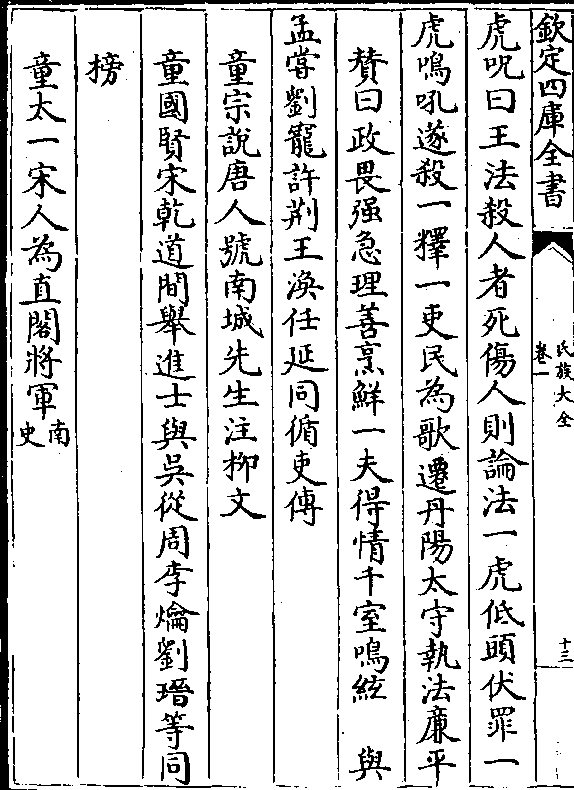 欽定四庫全書
氏族大全
卷一
十三
虎呪曰王法殺人者死傷人則論法一虎低頭伏罪一
虎鳴吼遂殺一釋一吏民為歌遷丹陽太守執法廉平
賛曰政畏强急理善烹鮮一夫得情千室鳴絃　與
孟嘗劉寵許荆王渙任延同循吏傳
童宗說唐人號南城先生注栁文
童國賢宋乾道間舉進士與吳從周李爚劉瑨等同
榜
童太一宋人為直閣將軍南史